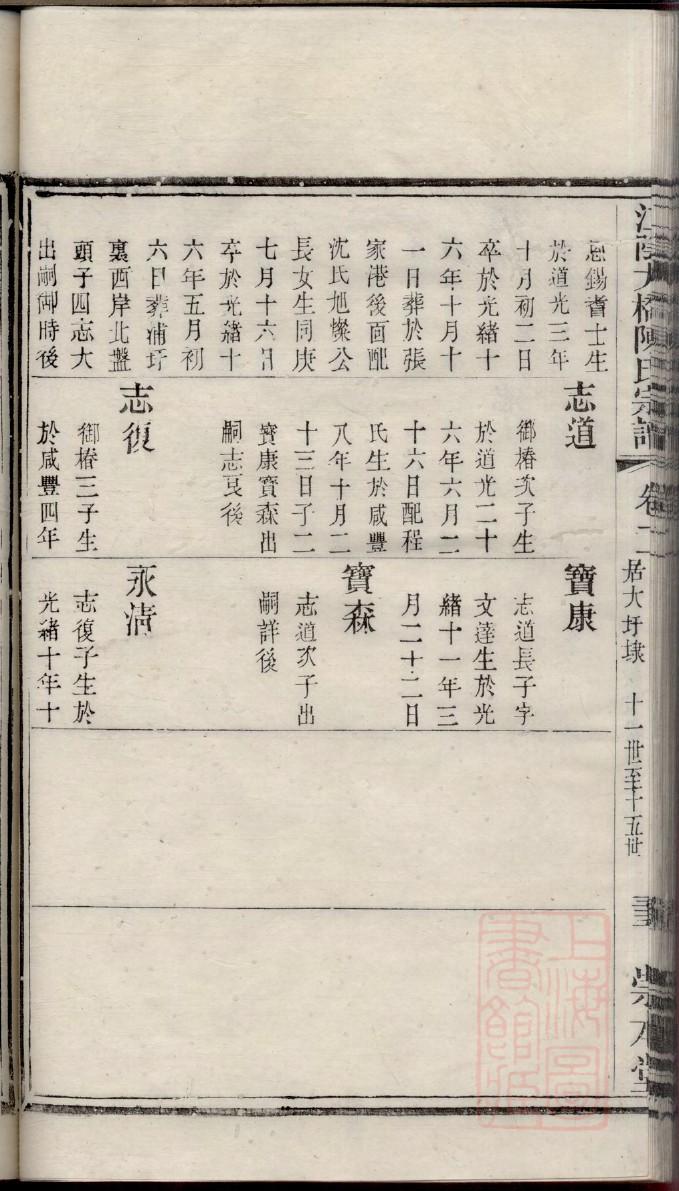 江陰大橋陳氏宗譜
卷二
居大圩埭
十一世至十五世
崇本堂
恩錫耆士生
於道光三年
十月初二日
卒於光緒十
六年十月十
一日葬於張
家港後面配
沈氏旭燦公
長女生同庚
七月十六日
卒於光緒十
六年五月初
六日葬浦圩
裏西岸北盤
頭子四志大
出嗣御時後
志道
御椿次子生
於道光二十
六年六月二
十六日配程
氏生於咸豐
八年十月二
十三日子二
寶康寶森出
嗣志良後
志復
御椿三子生
於咸豐四年
寶康
志道長子字
文達生於光
緒十一年三
月二十二日
寶森
志道次子出
嗣詳後
永清
志復子生於
光緒十年十
上海圖
書館藏